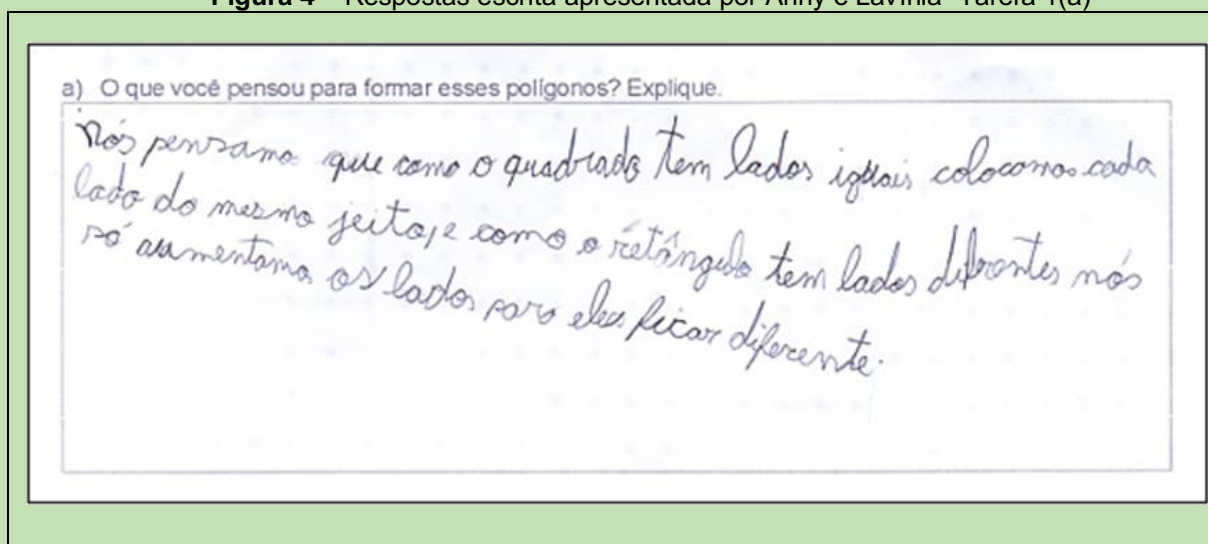 Figura 4 – Respostas escrita apresentada por Anny e Lavínia- Tarefa 1(a)
a) O que você pensou para formar esses polígonos? Explique.
Nós pensamo que como o quadrado tem lados iguais colocamos cada
lado do mesmo jeito, e como o retângulo tem lados diferentes nós
só aumentamo os lados para eles ficar diferente.